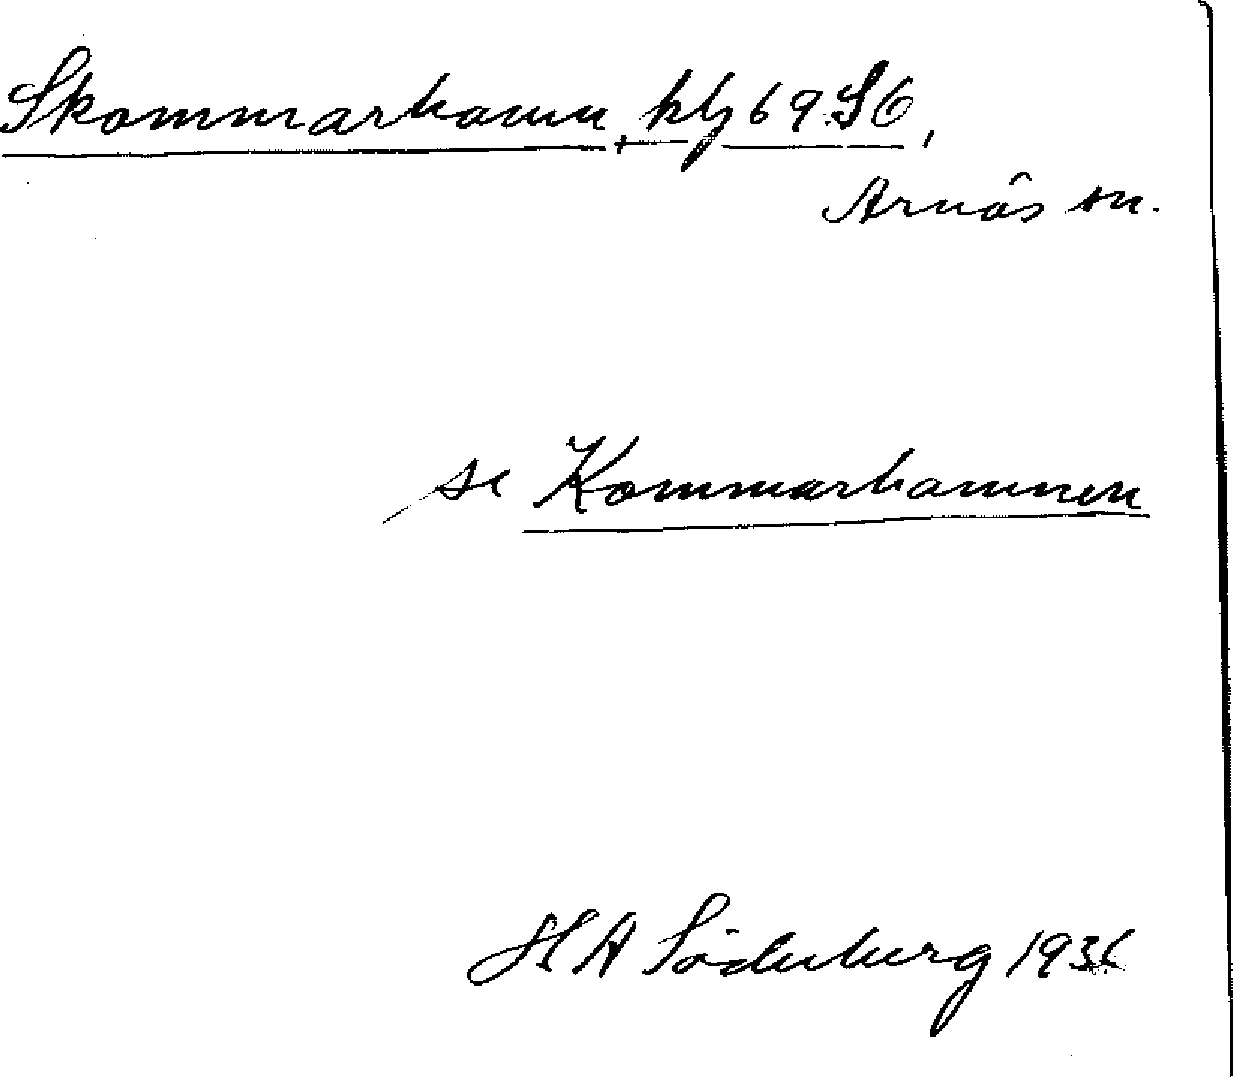 Skommarhamn, klg 69 S6,
Arnäs sn.
se Kommarhamnen
H A Söderberg 1936